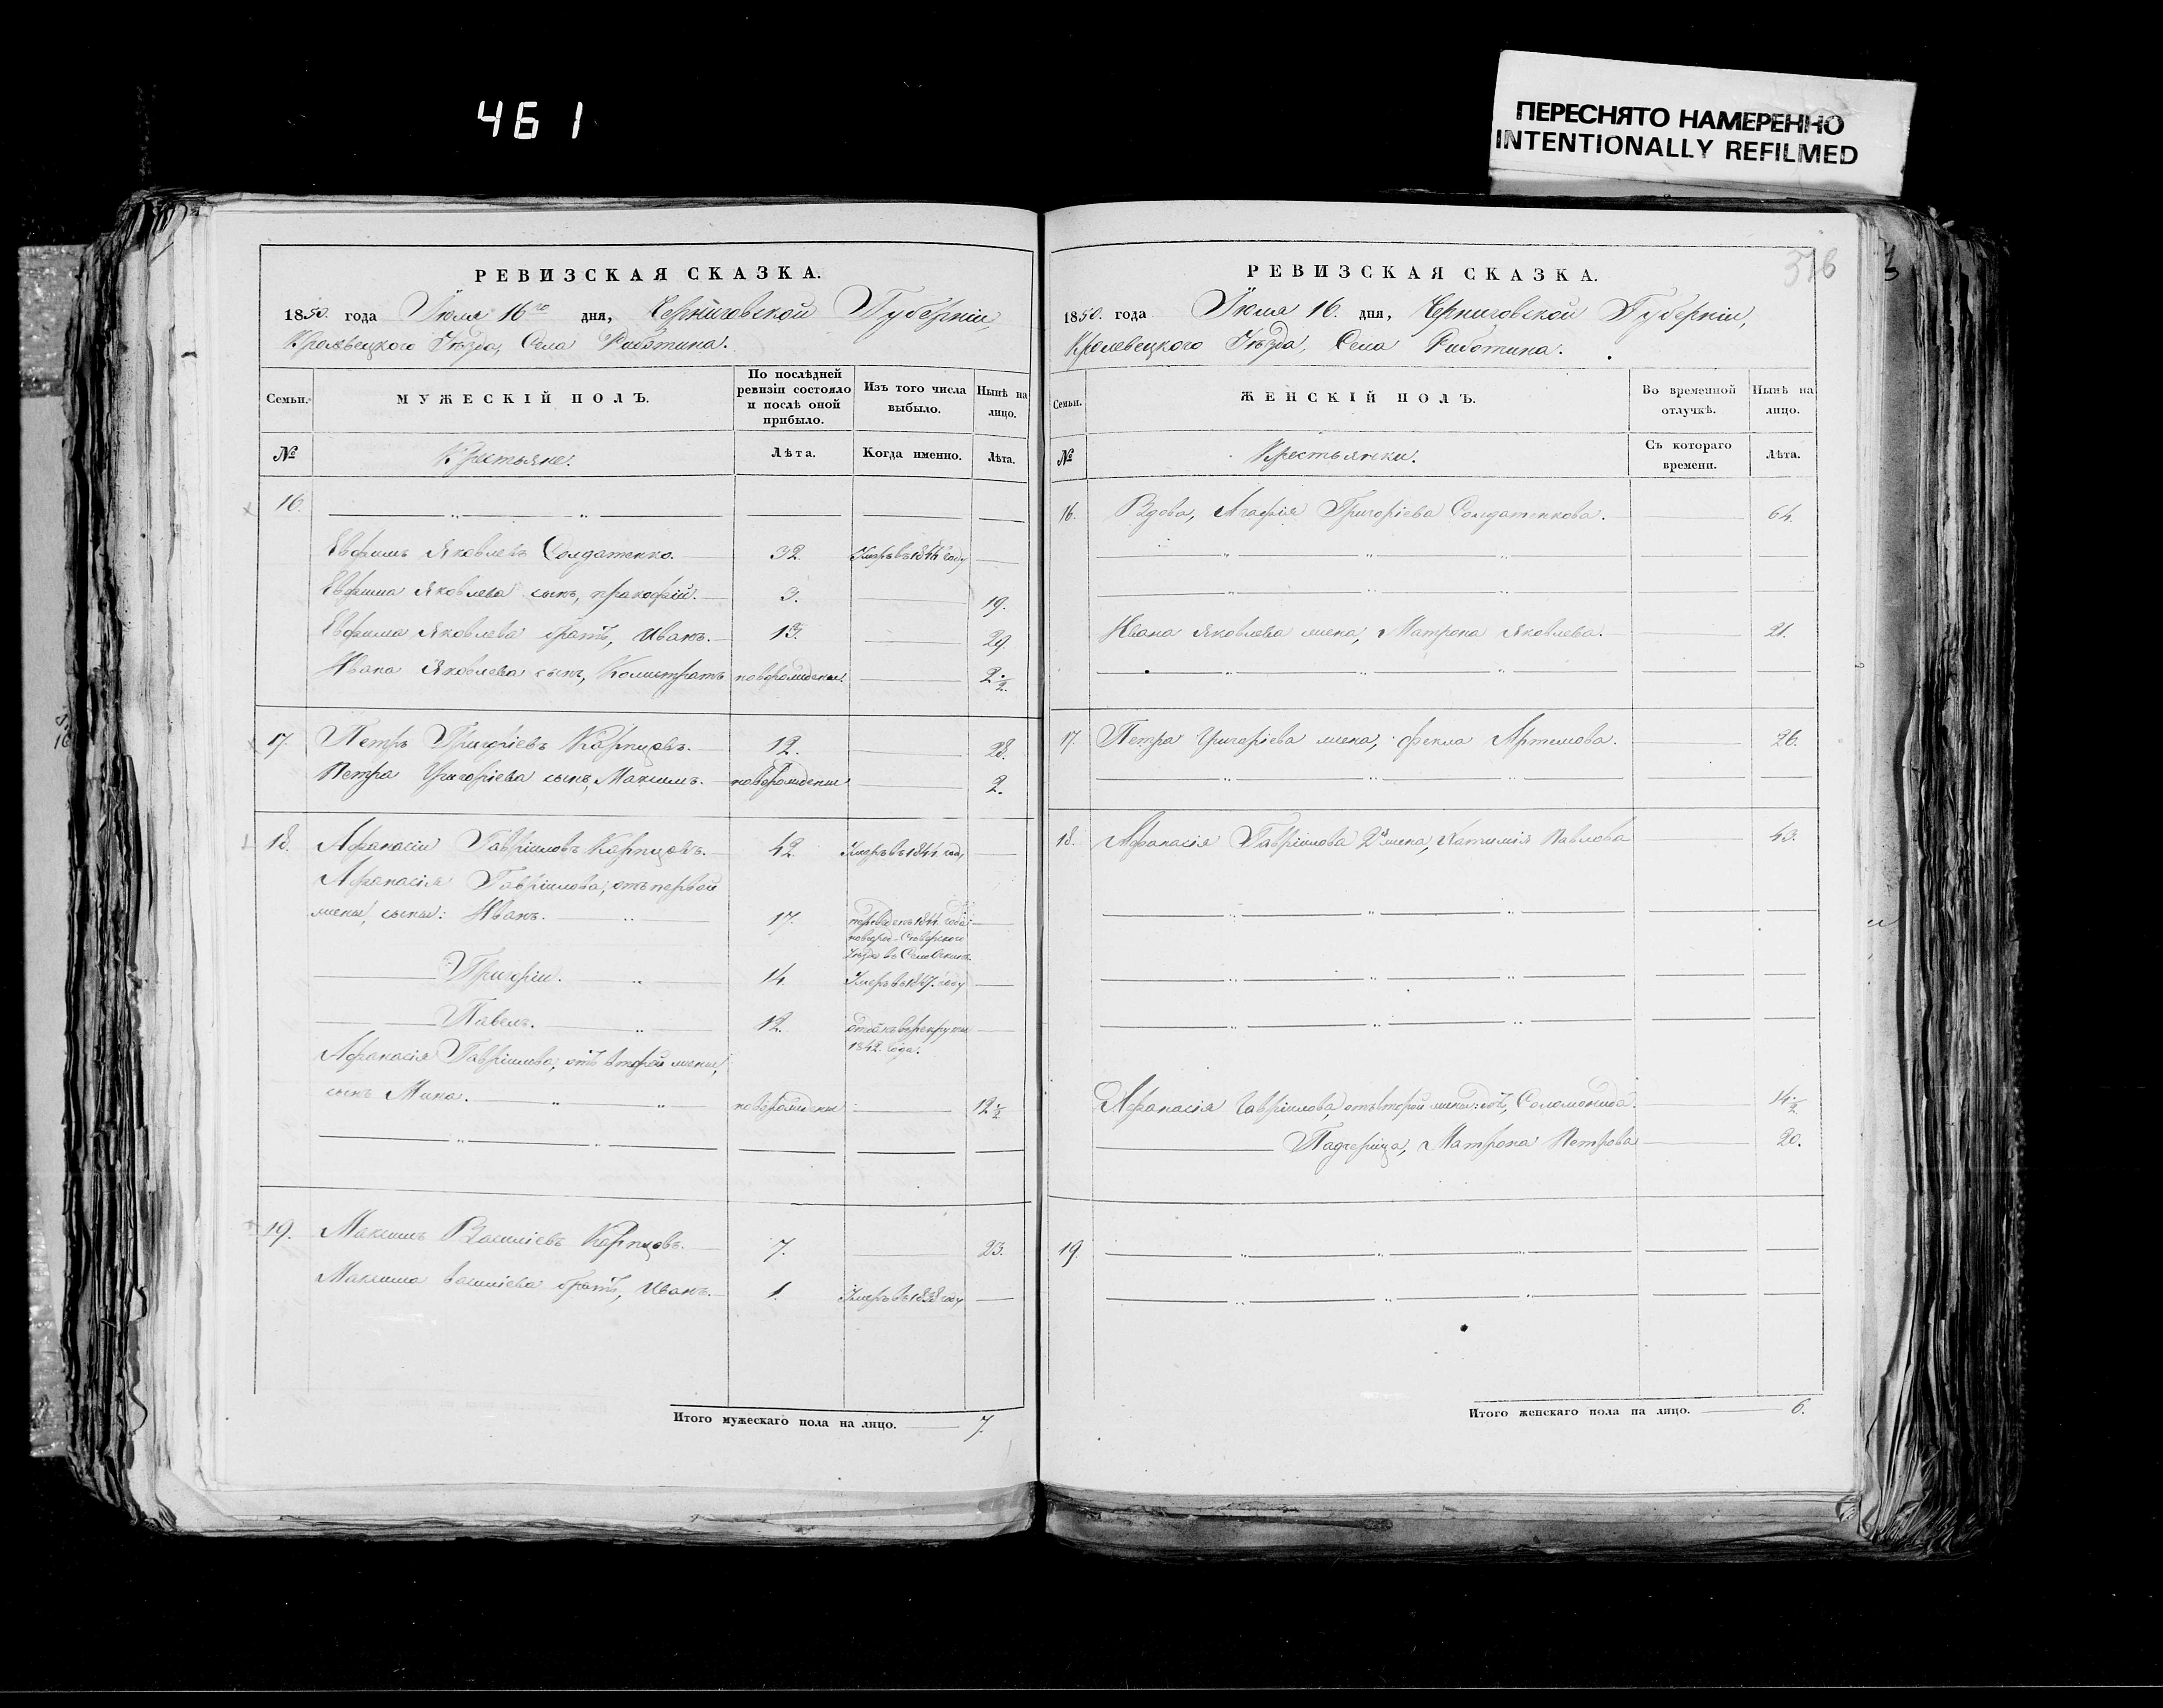 461
ПЕРЕСНЯТО НАМЕРЕННО
INTENTIONALLY REFILMED
РЕВИЗСКАЯ СКАЗКА.
1850. года Іюля 16го дня, Черниговской Губерніи,
Кролевецкого Уѣзда, Села Работина.
Семьи.
МУЖЕСКІЙ ПОЛЪ.
По послѣдней ревизіи состояло и послѣ оной прибыло.
Изъ того числа выбыло.
Нынѣ на лицо.
№
Крестьяне.
Лѣта.
Когда именно.
Лѣта.
16.
Евфимъ Яковлевъ Солдатенко. 32. Умеръ въ 1844 году
Евфима Яковлева сынъ, Прокофій. 3. 19.
Евфима Яковлева братъ, Иванъ. 13. 29.
Ивана Яковлева сынъ, Калистратъ новорожденъ. 2 ½.
17. Петръ Григоріевъ Карпцовъ. 12. 28.
Петра Григоріева сынъ, Максимъ. новорожденъ 2.
18. Афанасій Гавріиловъ Карпцовъ. 42. Умеръ въ 1841. году
Афанасія Гавріилова, отъ первой
жены, сыны: Иванъ. 17. переведенъ 1844. года
Новгород-Сѣверского
Уѣзда въ Село
Григорій. 14. Умеръ въ 1847. году
Павелъ. 12. отданъ въ рекруты
1842. года.
Афанасія Гавріилова, отъ второй жены,
сынъ Мина. новорожденъ 12 ½
19. Максимъ Василіевъ Карпцовъ. 7. 23.
Максима Василіева братъ, Иванъ. 1. Умеръ въ 1838 году
Итого мужескаго пола на лицо. 7.
376
РЕВИЗСКАЯ СКАЗКА.
1850. года Іюля 16. дня, Черниговской Губерніи,
Кролевецкого Уѣзда, Села Работина.
Семьи.
ЖЕНСКІЙ ПОЛЪ.
Во временной отлучкѣ.
Нынѣ на лицо.
№
Крестьянки.
Съ котораго времени.
Лѣта.
16. Вдова, Агафія Григоріева Солдатенкова. 64.
Ивана Яковлева жена, Матрона Яковлева. 21.
17. Петра Григоріева жена, Фекла Артемова. 26.
18. Афанасія Гавріилова 2я жена, Павлова 43.
Афанасія Гавріилова, отъ второй жены: дочь, Соломонида. 14 ½
Падчерица, Матрона Петрова 20.
19.
Итого женскаго пола на лицо. 6.